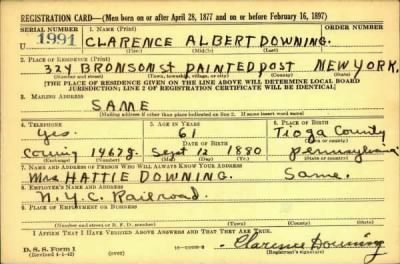 REGISTRATION CARD—(Men born on or after April 28, 1877 and on or before February 16, 1897)
SERIAL NUMBER 1. NAME (Print)
U 1991 CLARENCE ALBERT DOWNING.
(First) (Middle) (Last)
2. PLACE OF RESIDENCE (Print)
324 BRONSON ST PAINTED POST NEW YORK.
(Number and street) (Town, township, village, or city) (County) (State)
[THE PLACE OF RESIDENCE GIVEN ON THE LINE ABOVE WILL DETERMINE LOCAL BOARD
JURISDICTION; LINE 2 OF REGISTRATION CERTIFICATE WILL BE IDENTICAL]
3. MAILING ADDRESS
SAME
[Mailing address if other than place indicated on line 2. If same insert word same]
4. TELEPHONE 5. AGE IN YEARS 6. PLACE OF BIRTH
Yes. 61 Tioga County
DATE OF BIRTH (Town or county)
Corning 1467J. Sept 12 1880 Pennsylvania
(Exchange) (Number) (Mo.) (Day) (Yr.) (State or country)
7. NAME AND ADDRESS OF PERSON WHO WILL ALWAYS KNOW YOUR ADDRESS
Mrs HATTIE DOWNING. Same.
8. EMPLOYER'S NAME AND ADDRESS
N.Y.C. Railroad.
9. PLACE OF EMPLOYMENT OR BUSINESS
(Number and street or R. F. D. number) (Town) (County) (State)
I AFFIRM THAT I HAVE VERIFIED ABOVE ANSWERS AND THAT THEY ARE TRUE.
D. S. S. Form 1 Clarence Downing
(Revised 4-1-42) (over) (Registrant's signature)